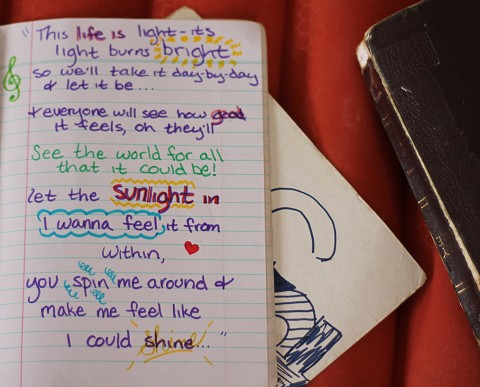 "This life is light-its
light burns bright
so we'll take it day-by-day
& let it be...
+ everyone will see how good
it feels, oh they'll
See the world for all
that it could be!
let the sunlight in
I wanna feel it from
within,
you spin me around &
make me feel like
I could shine..."